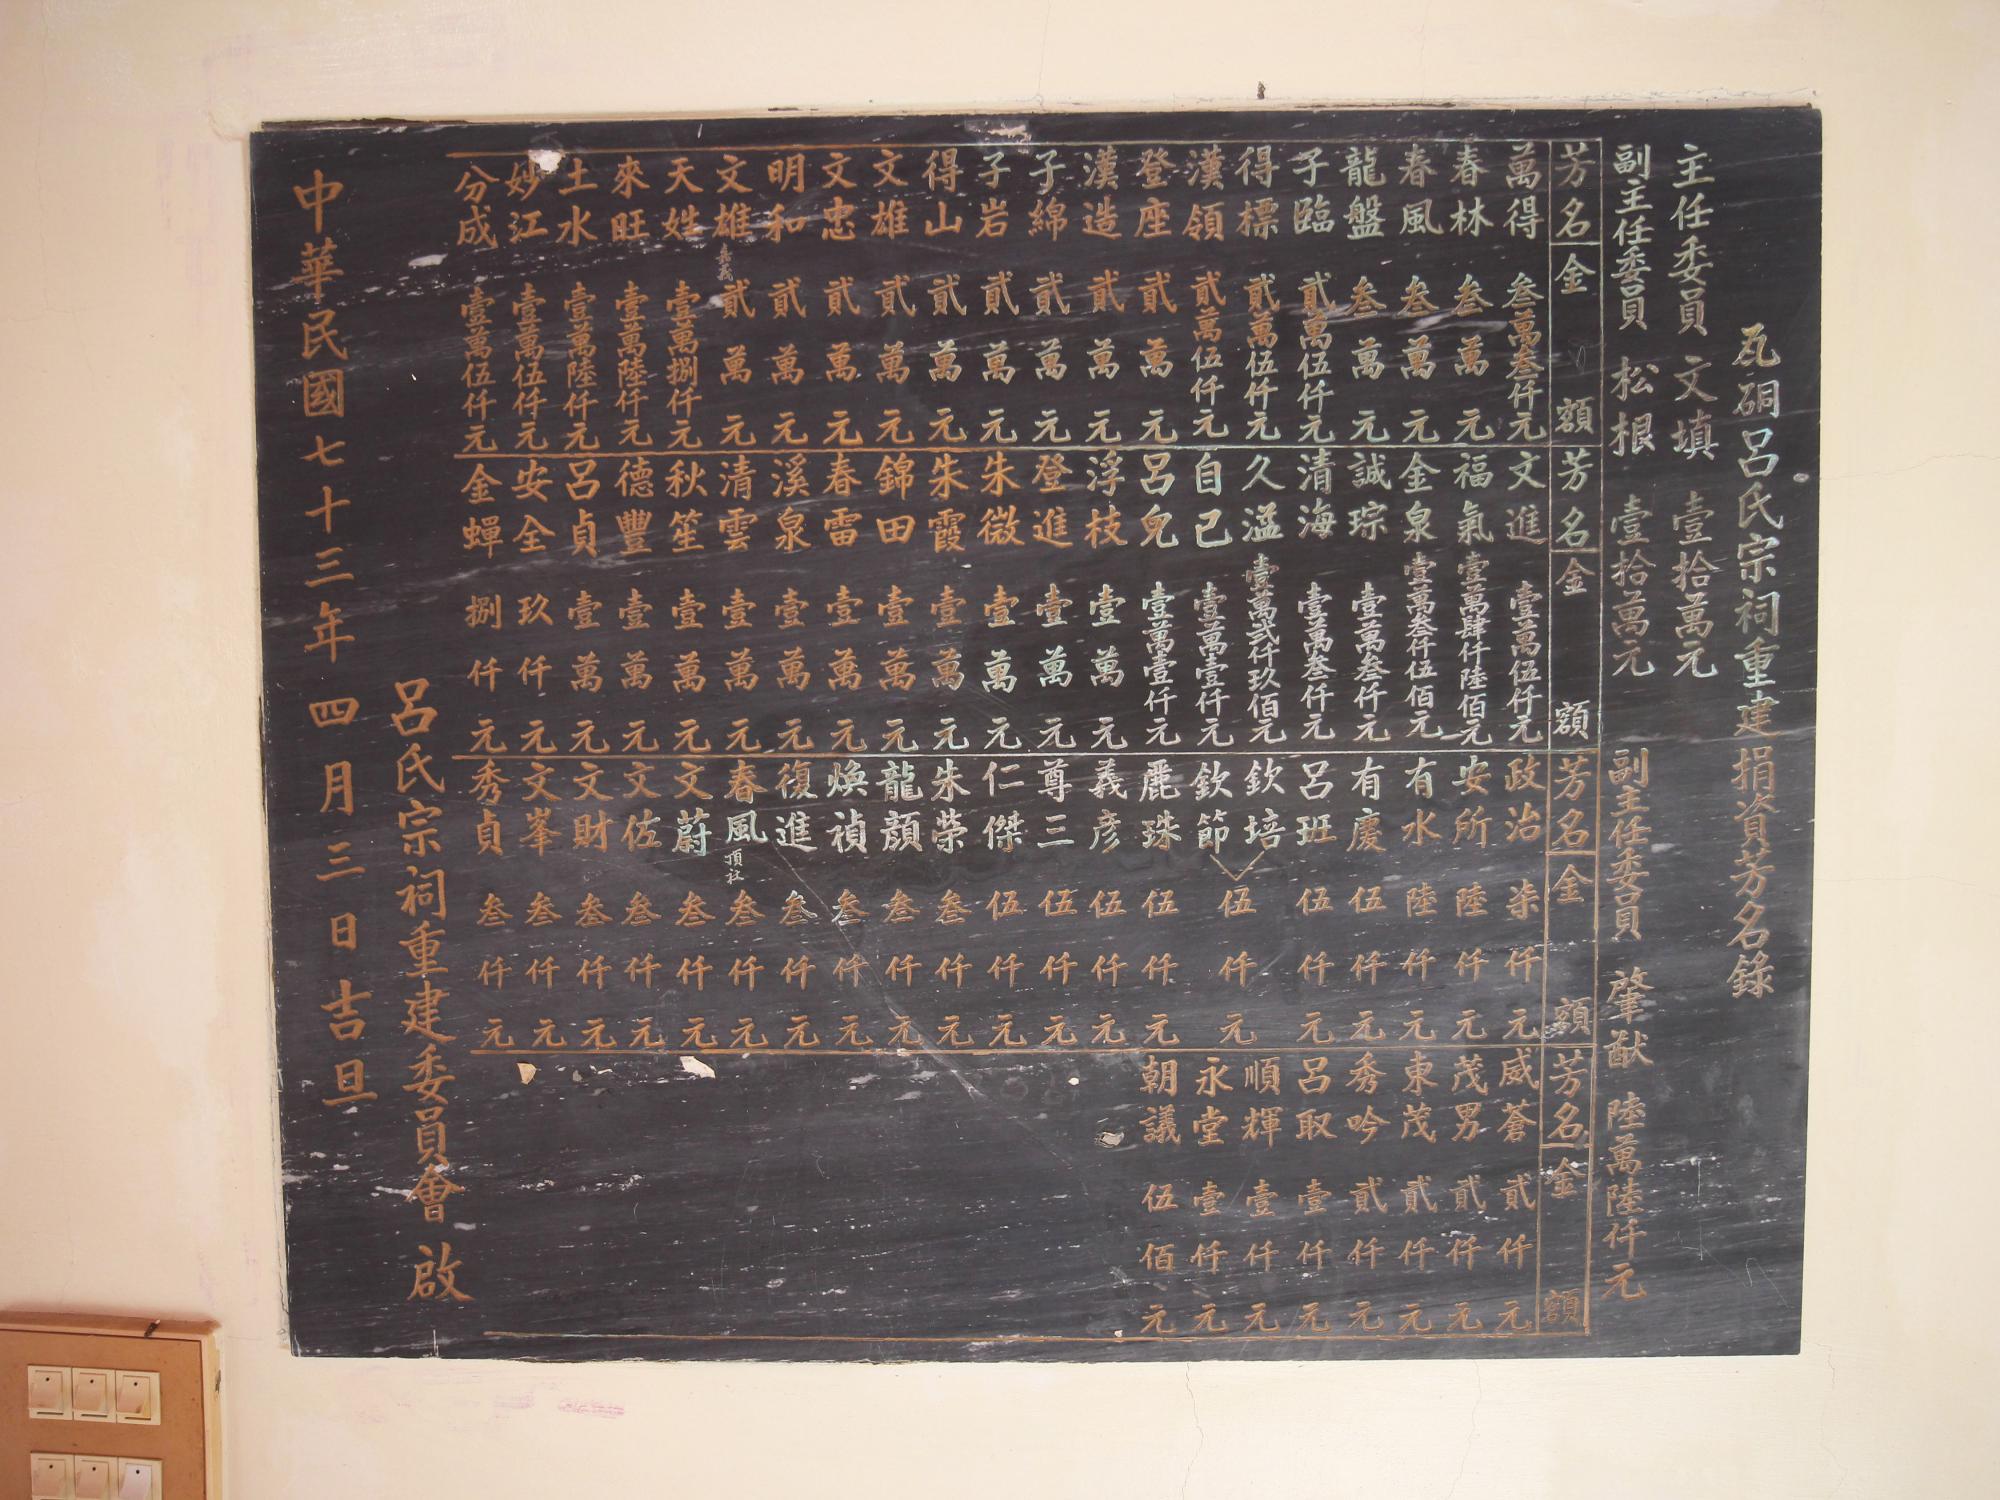 瓦硐呂氏宗祠重建捐資芳名錄
主任委員 文填 壹拾萬元
副主任委員 松根 壹拾萬元 副主任委員 肇猷 陸萬陸仟元
芳名 金額
萬得 叁萬叁仟元
春林 叁萬元
春風 叁萬元
龍盤 叁萬元
子臨 貳萬伍仟元
得標 貳萬伍仟元
漢領 貳萬伍仟元
登座 貳萬元
漢造 貳萬元
子綿 貳萬元
子岩 貳萬元
得山 貳萬元
文雄 貳萬元
文忠 貳萬元
明和 貳萬元
文雄 嘉義 貳萬元
天姓 壹萬捌仟元
來旺 壹萬陸仟元
土水 壹萬陸仟元
妙江 壹萬伍仟元
分成 壹萬伍仟元
芳名 金額
文進 壹萬伍仟元
福氣 壹萬肆仟陸佰元
金泉 壹萬叁仟伍佰元
誠琮 壹萬叁仟元
清海 壹萬叁仟元
久溢 壹萬貳仟玖佰元
自己 壹萬壹仟元
呂兒 壹萬壹仟元
浮枝 壹萬元
登進 壹萬元
朱微 壹萬元
朱霞 壹萬元
錦田 壹萬元
春雷 壹萬元
溪泉 壹萬元
清雲 壹萬元
秋笙 壹萬元
德豐 壹萬元
呂貞 壹萬元
安全 玖仟元
金蟬 捌仟元
芳名 金額
政治 柒仟元
安所 陸仟元
有水 陸仟元
有慶 伍仟元
呂班 伍仟元
欽培
欽節 伍仟元
麗珠 伍仟元
義彥 伍仟元
尊三 伍仟元
仁傑 伍仟元
朱榮 叁仟元
龍顏 叁仟元
煥禎 叁仟元
復進 叁仟元
春風 頂社 叁仟元
文蔚 叁仟元
文佐 叁仟元
文財 叁仟元
文峯 叁仟元
秀貞 叁仟元
芳名 金額
威蒼 貳仟元
茂男 貳仟元
東茂 貳仟元
秀吟 貳仟元
呂取 壹仟元
順輝 壹仟元
永堂 壹仟元
朝議 伍佰元
呂氏宗祠重建委員會 啟
中華民國七十三年四月三日吉旦